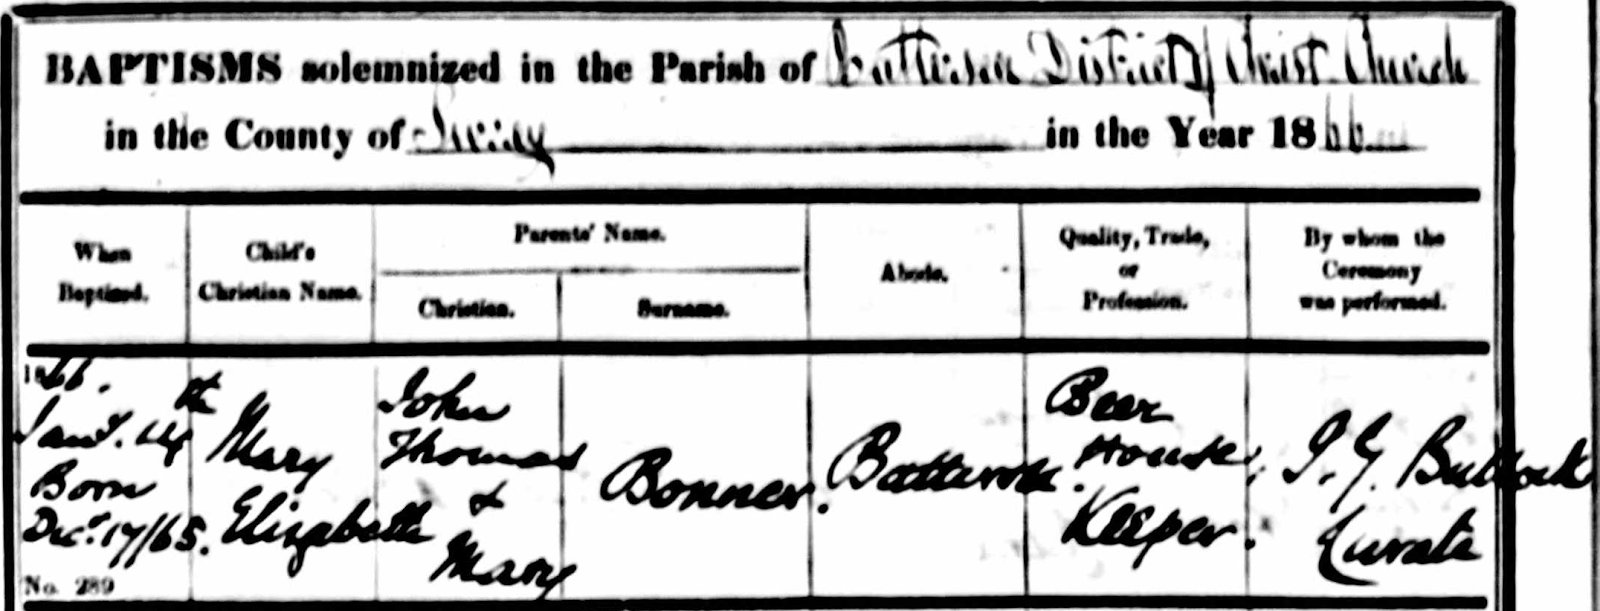 BAPTISMS solemnized in the Parish of Battersea District of Christ Church
in the County of Surrey in the Year 1866
When
Baptized.
Child's
Christian Name.
Parents' Name.
Christian.
Surname.
Abode.
Quality, Trade,
or
Profession.
By whom the
Ceremony
was performed.
1866.
Jany. 14th
Born
Decr. 17/65.
No. 289
Mary
Elizabeth
John
Thomas
&
Mary
Bonner.
Battersea.
Beer
House
Keeper.
Bullock
Curate